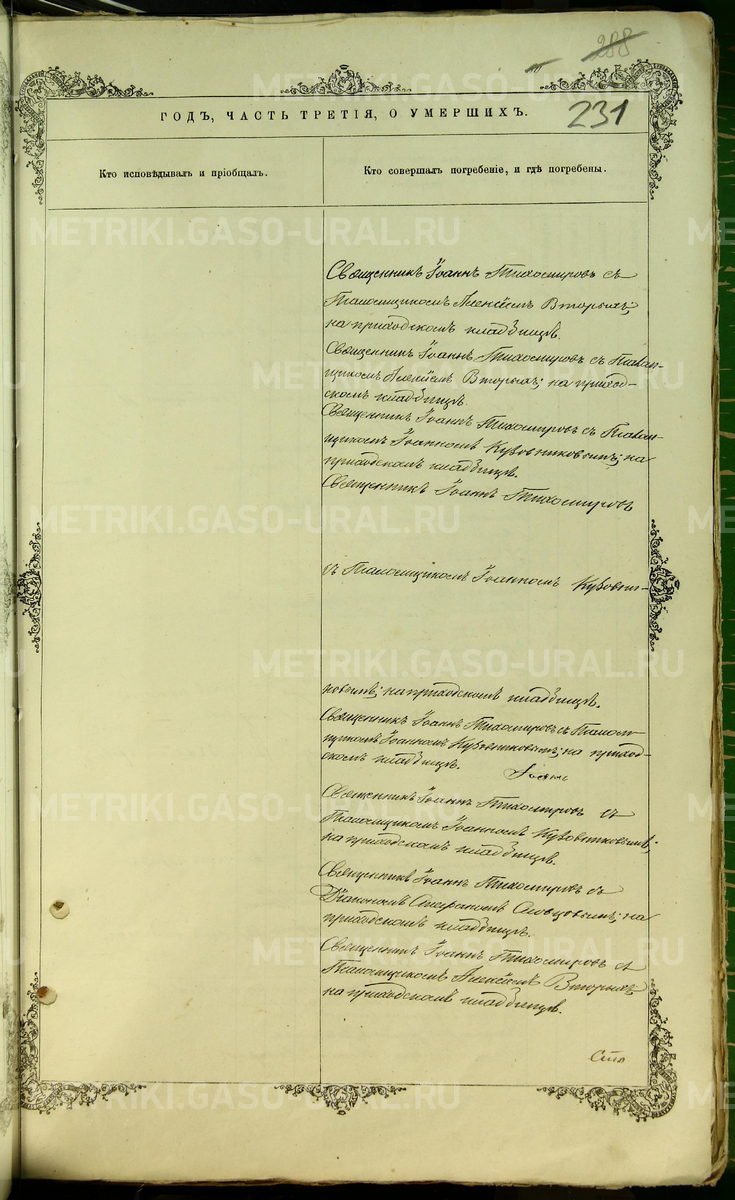 288
231
ГОДЪ, ЧАСТЬ ТРЕТІЯ, О УМЕРШИХЪ.
Кто исповѣдывалъ и пріобщалъ.
Кто совершалъ погребеніе, и гдѣ погребены.
Священникъ Іоаннъ Тихомировъ съ
Псаломщикомъ Алексѣемъ Вторыхъ;
на приходскомъ кладбищѣ.
Священникъ Іоаннъ Тихомировъ съ Псалом-
щикомъ Алексѣемъ Вторыхъ; на приход-
скомъ кладбищѣ.
Священникъ Іоаннъ Тихомировъ съ Псалом-
щикомъ Іоанномъ Кузовниковымъ; на
приходскомъ кладбищѣ.
Священникъ Іоаннъ Тихомировъ
съ Псаломщикомъ Іоанномъ Кузовни-
ковымъ; на приходскомъ кладбищѣ.
Священникъ Іоаннъ Тихомировъ съ Псалом-
щикомъ Іоанномъ Кузовниковымъ; на приход-
скомъ кладбищѣ.
Священникъ Іоаннъ Тихомировъ съ
Псаломщикомъ Іоанномъ Кузовниковымъ;
на приходскомъ кладбищѣ.
Священникъ Іоаннъ Тихомировъ съ
Діакономъ Стефаномъ Словцовымъ; на
приходскомъ кладбищѣ.
Священникъ Іоаннъ Тихомировъ съ
Псаломщикомъ Алексѣемъ Вторыхъ;
на приходскомъ кладбищѣ.
METRIKI.GASO-URAL.RU